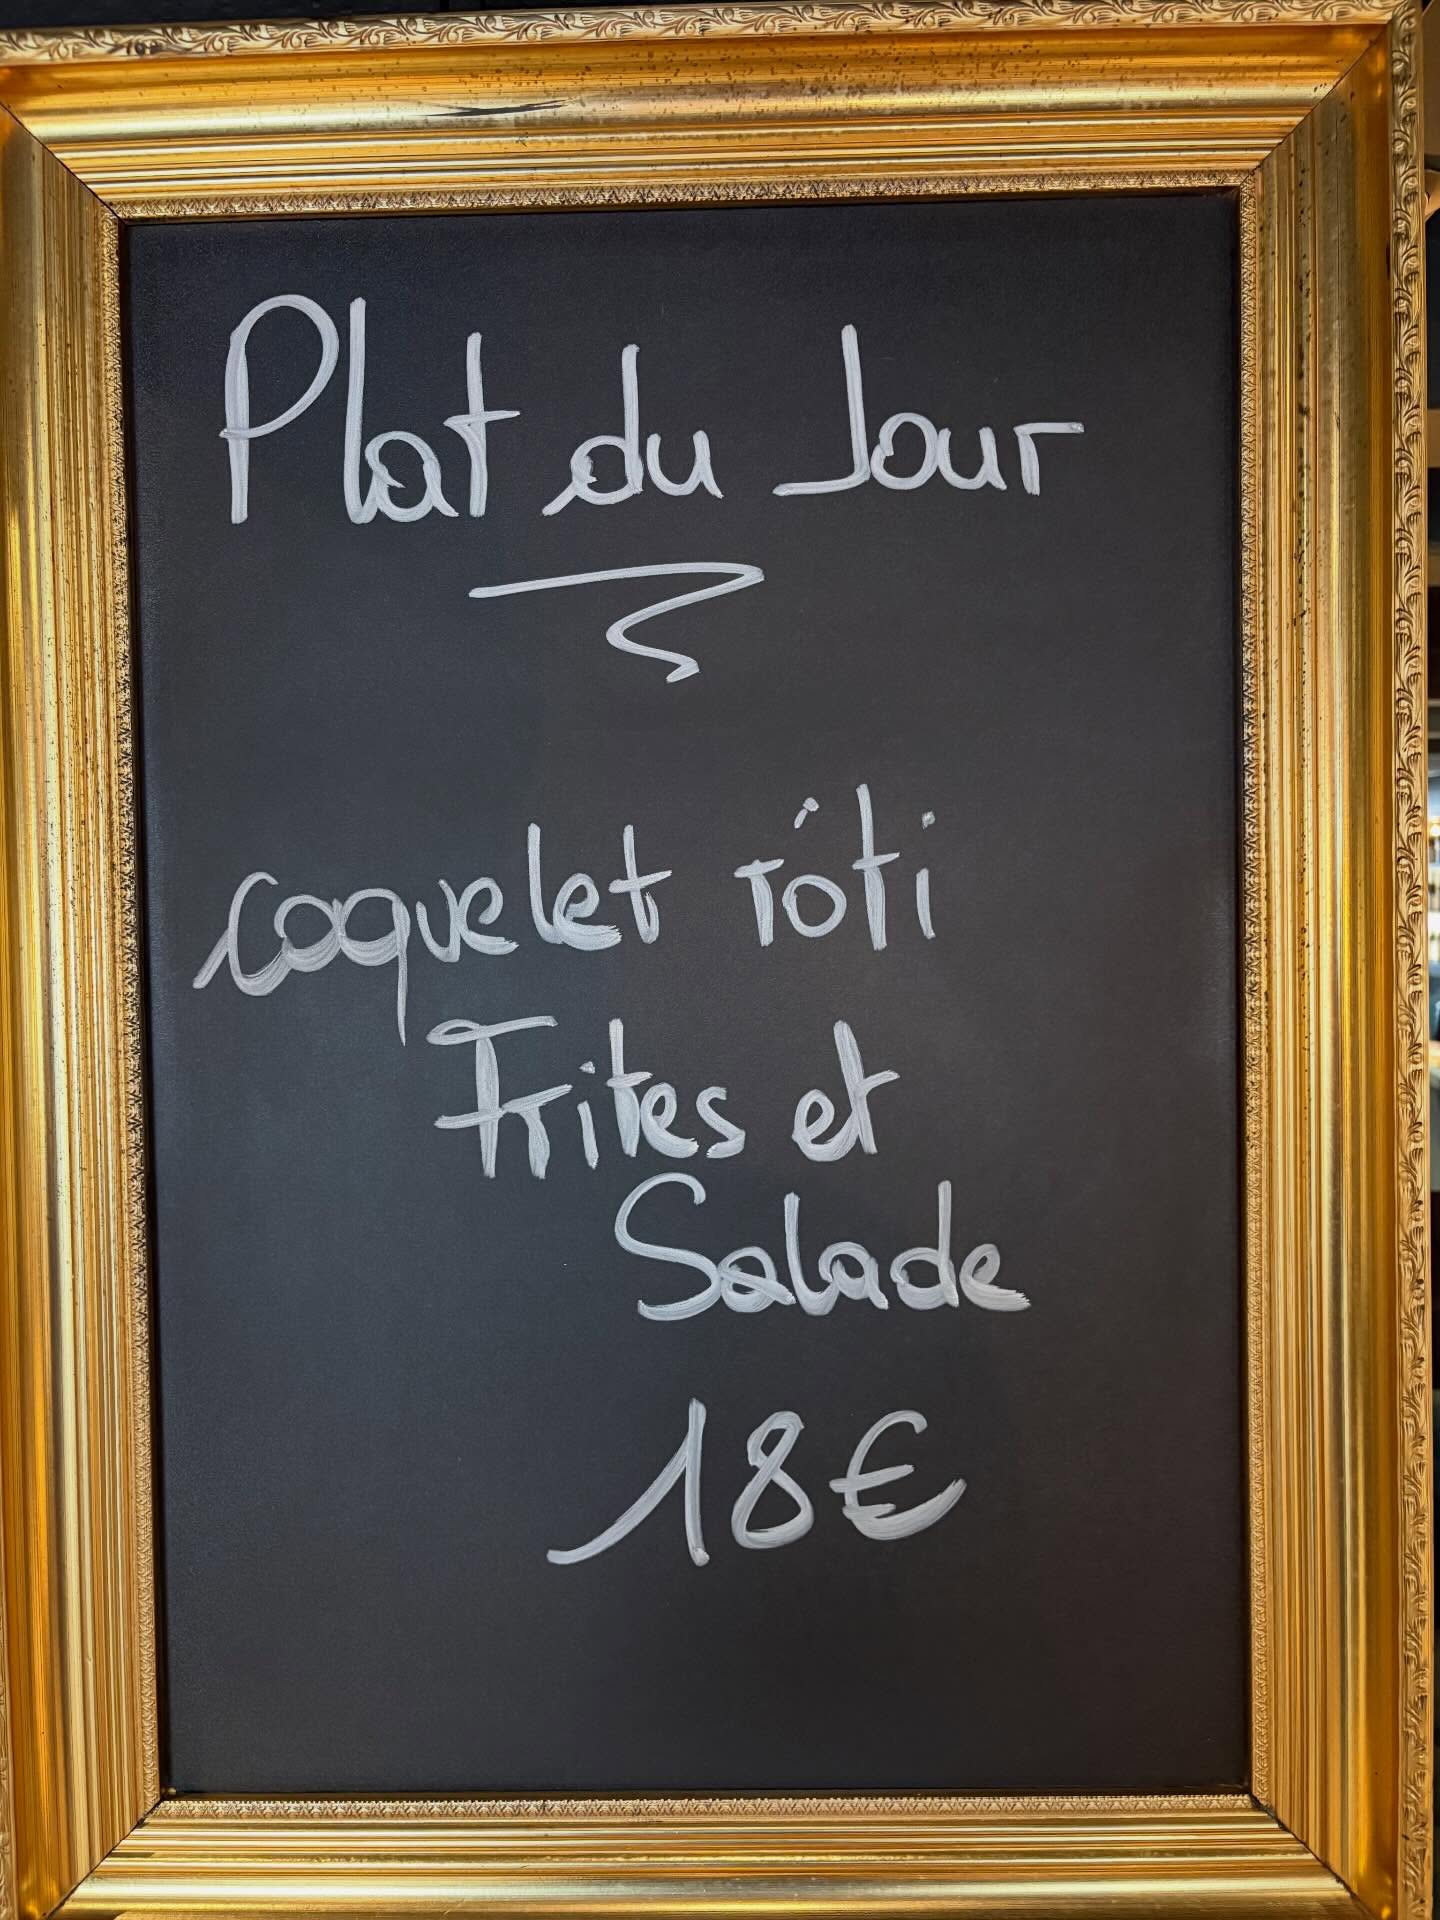 Plat du Jour
coquelet rôti
Frites et
Salade
18€